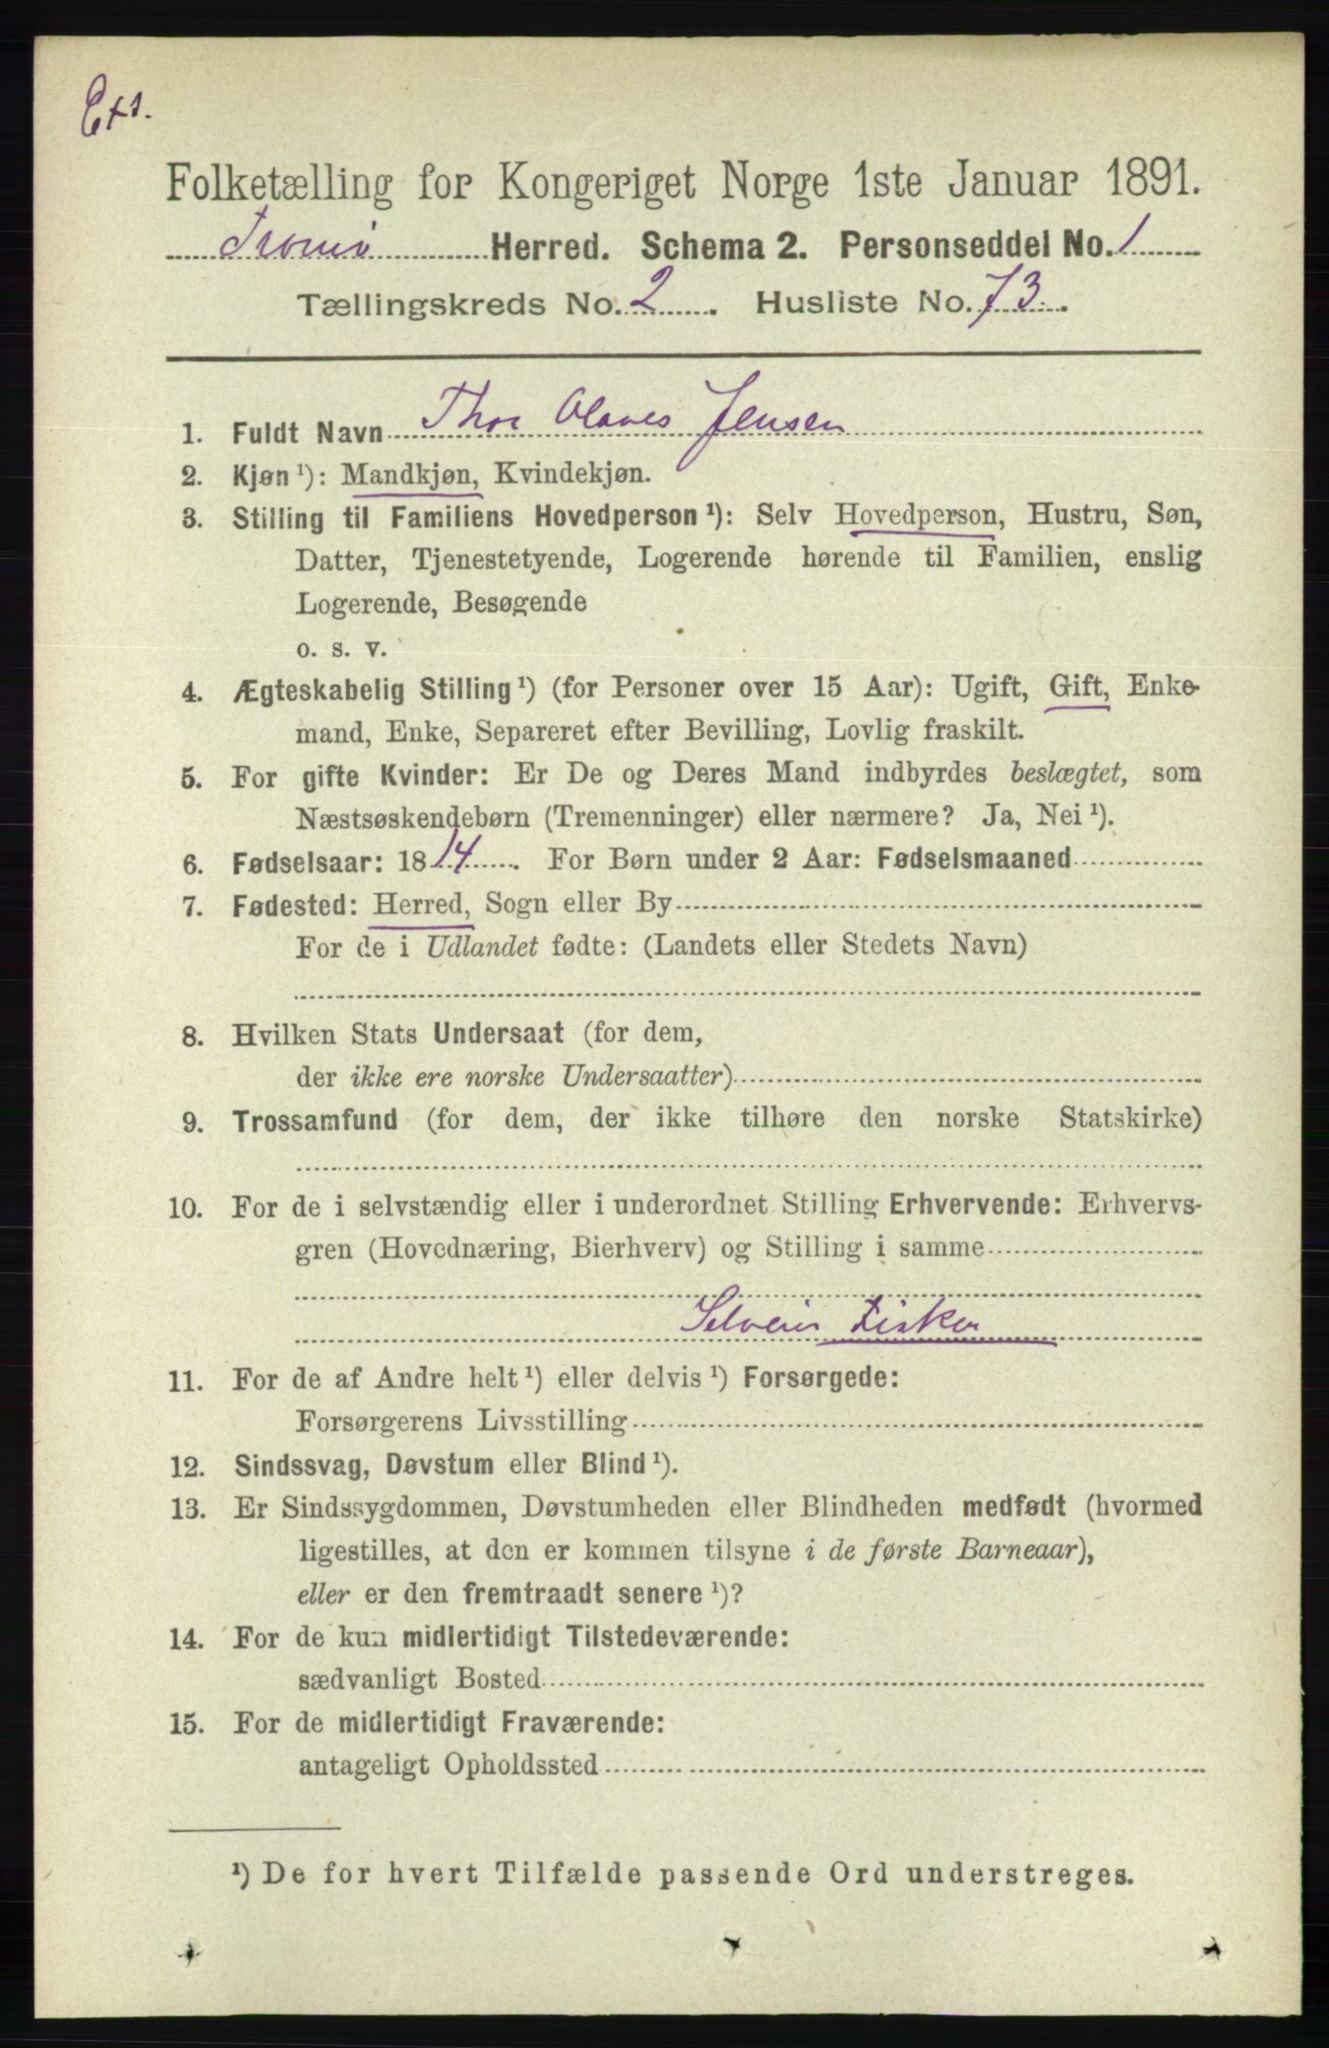 Exs.
Folketælling for Kongeriget Norge 1ste Januar 1891.
Tromø Herred. Schema 2. Personseddel No. 1
Tællingskreds No. 2. Husliste No. 73.
1. Fuldt Navn Thor Olaves Jensen
2. Kjøn ¹): Mandkjøn, Kvindekjøn.
3. Stilling til Familiens Hovedperson ¹): Selv Hovedperson, Hustru, Søn,
Datter, Tjenestetyende, Logerende hørende til Familien, enslig
Logerende, Besøgende
o. s. v.
4. Ægteskabelig Stilling ¹) (for Personer over 15 Aar): Ugift, Gift, Enke-
mand, Enke, Separeret efter Bevilling, Lovlig fraskilt.
5. For gifte Kvinder: Er De og Deres Mand indbyrdes beslægtet, som
Næstsøskendebørn (Tremenninger) eller nærmere? Ja, Nei ¹).
6. Fødselsaar: 1814. For Børn under 2 Aar: Fødselsmaaned
7. Fødested: Herred, Sogn eller By
For de i Udlandet fødte: (Landets eller Stedets Navn)
8. Hvilken Stats Undersaat (for dem,
der ikke ere norske Undersaatter)
9. Trossamfund (for dem, der ikke tilhøre den norske Statskirke)
10. For de i selvstændig eller i underordnet Stilling Erhvervende: Erhvervs-
gren (Hovednæring, Bierhverv) og Stilling i samme
Selveier Fisker
11. For de af Andre helt ¹) eller delvis ¹) Forsørgede:
Forsørgerens Livsstilling
12. Sindssvag, Døvstum eller Blind ¹).
13. Er Sindssygdommen, Døvstumheden eller Blindheden medfødt (hvormed
ligestilles, at den er kommen tilsyne i de første Barneaar),
eller er den fremtraadt senere ¹)?
14. For de kun midlertidigt Tilstedeværende:
sædvanligt Bosted
15. For de midlertidigt Fraværende:
antageligt Opholdssted
¹) De for hvert Tilfælde passende Ord understreges.